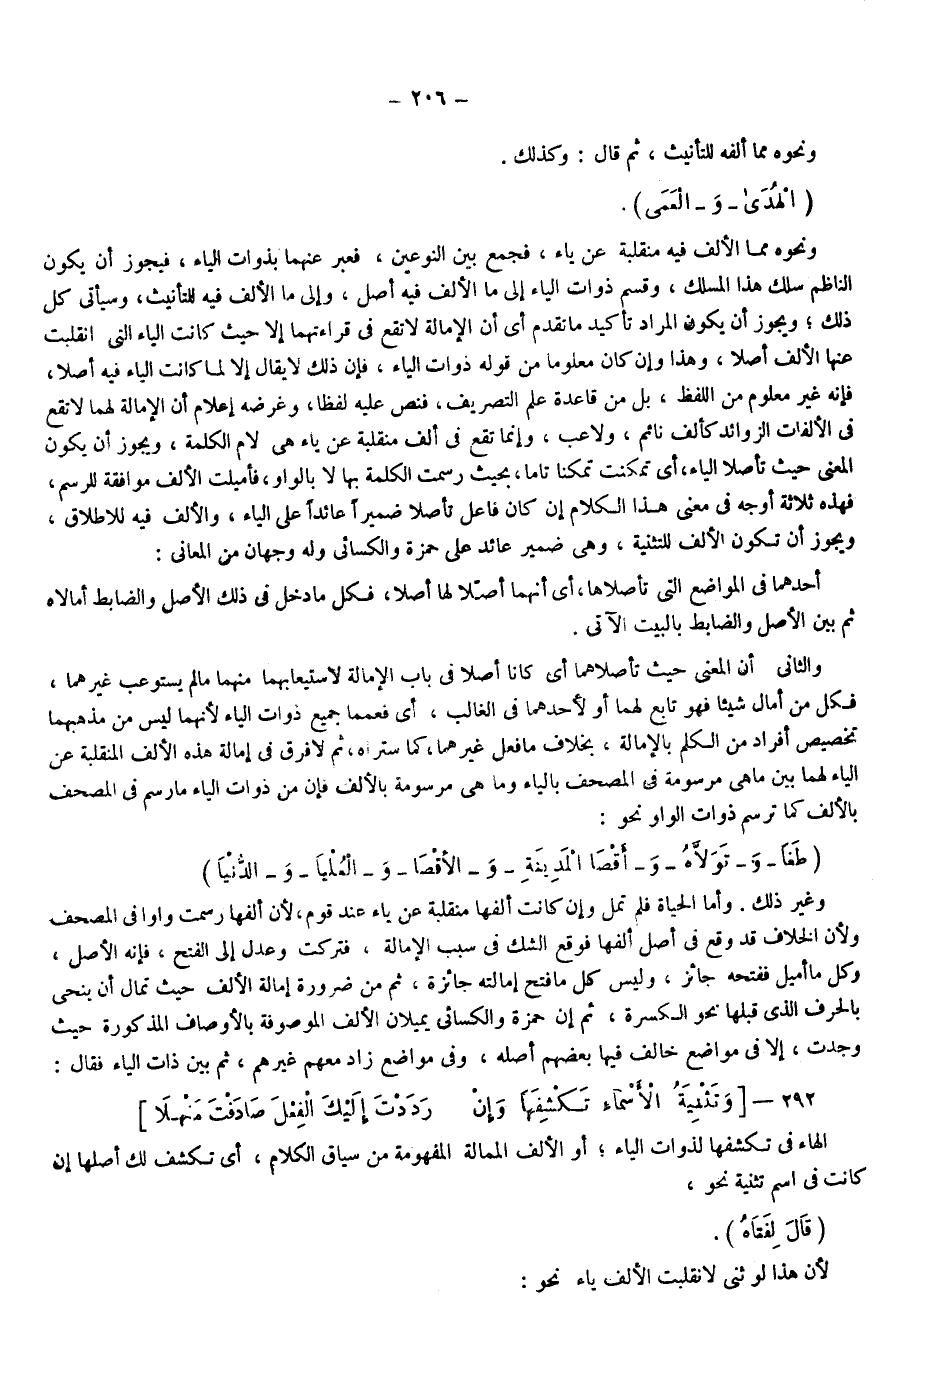 - ٢٠٦ -
ونحوه مما ألفه للتأنيث ، ثم قال : وكذلك .
( الْهُدَىٰ - وَ - الْعَمَى ) .
ونحوه مما الألف فيه منقلبة عن ياء ، فجمع بين النوعين ، فعبر عنهما بذوات الياء ، فيجوز أن يكون
الناظم سلك هذا المسلك ، وقسم ذوات الياء إلى ما الألف فيه أصل ، وإلى ما الألف فيه للتأنيث، وسيأتى كل
ذلك ؛ ويجوز أن يكون المراد تأكيد ماتقدم أى أن الإمالة لاتقع فى قراءتهما إلا حيث كانت الياء التى انقلبت
عنها الألف أصلا ، وهذا وإن كان معلوما من قوله ذوات الياء ، فإن ذلك لايقال إلا لما كانت الياء فيه أصلا،
فإنه غير معلوم من اللفظ ، بل من قاعدة علم التصريف، فنص عليه لفظا، وغرضه إعلام أن الإمالة لهما لاتقع
فى الألفات الزوائد كألف نائم ، ولاعب ، وإنما تقع فى ألف منقلبة عن ياء هى لام الكلمة ، ويجوز أن يكون
المعنى حيث تأصلا الياء، أى تمكنت تمكنا تاما، بحيث رسمت الكلمة بها لا بالواو، فأميلت الألف موافقة للرسم،
فهذه ثلاثة أوجه فى معنى هذا الكلام إن كان فاعل تأصلا ضميراً عائداً على الياء ، والألف فيه للاطلاق ،
ويجوز أن تكون الألف للتثنية ، وهى ضمير عائد على حمزة والكسائى وله وجهان من المعانى :
أحدهما فى المواضع التى تأصلاها، أى أنهما أصّلا لها أصلا، فكل مادخل فى ذلك الأصل والضابط أمالاه
ثم بين الأصل والضابط بالبيت الآتى .
والثانى أن المعنى حيث تأصلاهما أى كانا أصلا فى باب الإمالة لاستيعابهما منهما مالم يستوعب غيرهما ،
فكل من أمال شيئا فهو تابع لهما أو لأحدهما فى الغالب ، أى فعمما جميع ذوات الياء لأنهما ليس من مذهبهما
تخصيص أفراد من الكلم بالإمالة ، بخلاف مافعل غيرهما، كما ستراه، ثم لافرق فى إمالة هذه الألف المنقلبة عن
الياء لهما بين ماهى مرسومة فى المصحف بالياء وما هى مرسومة بالألف فإن من ذوات الياء مارسم فى المصحف
بالألف كما ترسم ذوات الواو نحو :
( طَغَا - وَ - تَوَلاَّهُ - وَ - أَقْصَا الْمَدِينَةِ - وَ - الأقْصَا - وَ - الْعُلْيَا - وَ - الدُّنْيَا )
وغير ذلك . وأما الحياة فلم تمل وإن كانت ألفها منقلبة عن ياء عند قوم، لأن ألفها رسمت واوا فى المصحف
ولأن الخلاف قد وقع فى أصل ألفها فوقع الشك فى سبب الإمالة ، فتركت وعدل إلى الفتح ، فإنه الأصل ،
وكل ماأميل ففتحه جائز ، وليس كل مافتح إمالته جائزة ، ثم من ضرورة إمالة الألف حيث تمال أن ينحى
بالحرف الذى قبلها نحو الكسرة ، ثم إن حمزة والكسائى يميلان الألف الموصوفة بالأوصاف المذكورة حيث
وجدت ، إلا فى مواضع خالف فيها بعضهم أصله ، وفى مواضع زاد معهم غيرهم ، ثم بين ذات الياء فقال :
٢٩٢ - [ وَتَثْنِيَةُ الْأَسْمَاءِ تَكْشِفُهَا وَإِنْ رَدَدْتَ إِلَيْكَ الْفِعْلَ صَادَفْتَ مَنْهَلَا ]
الهاء فى تكشفها لذوات الياء ؛ أو الألف الممالة المفهومة من سياق الكلام ، أى تكشف لك أصلها إن
كانت فى اسم تثنية نحو ،
( قَالَ لِفَتَاهُ ) .
لأن هذا لو ثنى لانقلبت الألف ياء نحو :